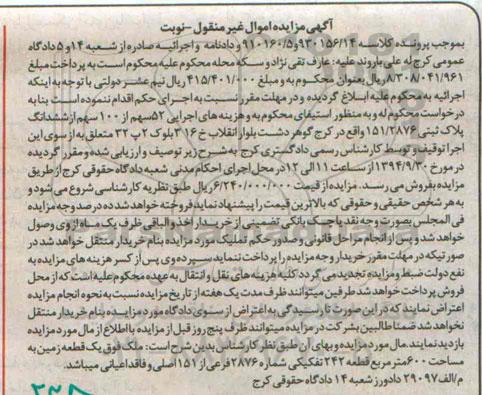 آگهی مزایده اموال غیر منقول -نوبت
بموجب پرونده کلاسه ۹۳۰۱۵۶/۱۴ و ۹۱۰۱۶۰/۵ و دادنامه و اجرائیه صادره از شعبه ۱۴ و ۵ دادگاه
عمومی کرج له علی باروند علیه: عارف تقی نژاد و سکه محله محکوم علیه محکوم است به پرداخت مبلغ
۸/۳۰۸/۰۴۱/۹۶۱ ریال بعنوان محکوم به و مبلغ ۴۱۵/۴۰۱/۰۰۰ ریال نیم عشر دولتی با توجه به اینکه
اجرائیه به محکوم علیه ابلاغ گردیده و در مهلت مقرر نسبت به اجرای حکم اقدام ننموده است بنا به
درخواست محکوم له و به منظور استیفای محکوم به و هزینه های اجرایی ۵۲ سهم از ۱۰۰ سهم از ششدانگ
پلاک ثبتی ۱۵۱/۲۸۷۶ واقع در کرج گوهردشت بلوار انقلاب خ ۳۱۶ بلوک ۲ پ ۳۲ متعلق به از سوی این
اجرا توقیف و توسط کارشناس رسمی دادگستری کرج به شرح زیر توصیف و ارزیابی شده و مقرر گردیده
در مورخ ۱۳۹۴/۹/۳۰ از ساعت ۱۱ الی ۱۲ در محل اجرای احکام مدنی شعبه دادگاه حقوقی کرج از طریق
مزایده بفروش می رسد. مزایده از قیمت ۶/۲۴۰/۰۰۰/۰۰۰ ریال طبق نظریه کارشناسی شروع می شود و
به هر شخص حقیقی و حقوقی که بالاترین قیمت را پیشنهاد نماید فروخته خواهد شد ده در صد وجه مزایده
فی المجلس بصورت وجه نقد یا چک بانکی تضمینی از خریدار اخذ والباقی ظرف یک ماه از وی وصول
خواهد شد و پس از انجام مراحل قانونی و صدور حکم تملیک مورد مزایده بنام خریدار منتقل خواهد شد در
صورتیکه در مهلت مقرر خریدار وجه مزایده را پرداخت ننماید سپرده وی پس از کسر هزینه های مزایده به
نفع دولت ضبط و مزایده تجدید می گردد کلیه هزینه های نقل و انتقال به عهده محکوم علیه است که از محل
فروش پرداخت خواهد شد طرفین میتوانند ظرف مدت یک هفته از تاریخ مزایده نسبت به نحوه انجام مزایده
اعتراض نمایند که در این صورت تا رسیدگی به اعتراض از سوی دادگاه مورد مزایده بنام خریدار منتقل
نخواهد شد ضمنا طالبین بشرکت در مزایده میتوانند ظرف پنج روز قبل از مزایده با اطلاع از مال مورد مزایده
بازدید نمایند. مال مورد مزایده و بهای آن طبق نظر کارشناس بدین شرح است: ملک فوق یک قطعه زمین به
مساحت ۶۰۰ متر مربع قطعه ۲۴۲ تفکیکی شماره ۲۸۷۶ فرعی از ۱۵۱ اصلی و فاقد اعیانی میباشد.
م/الف ۲۹۰۹۷ دادورز شعبه ۱۴ دادگاه حقوقی کرج